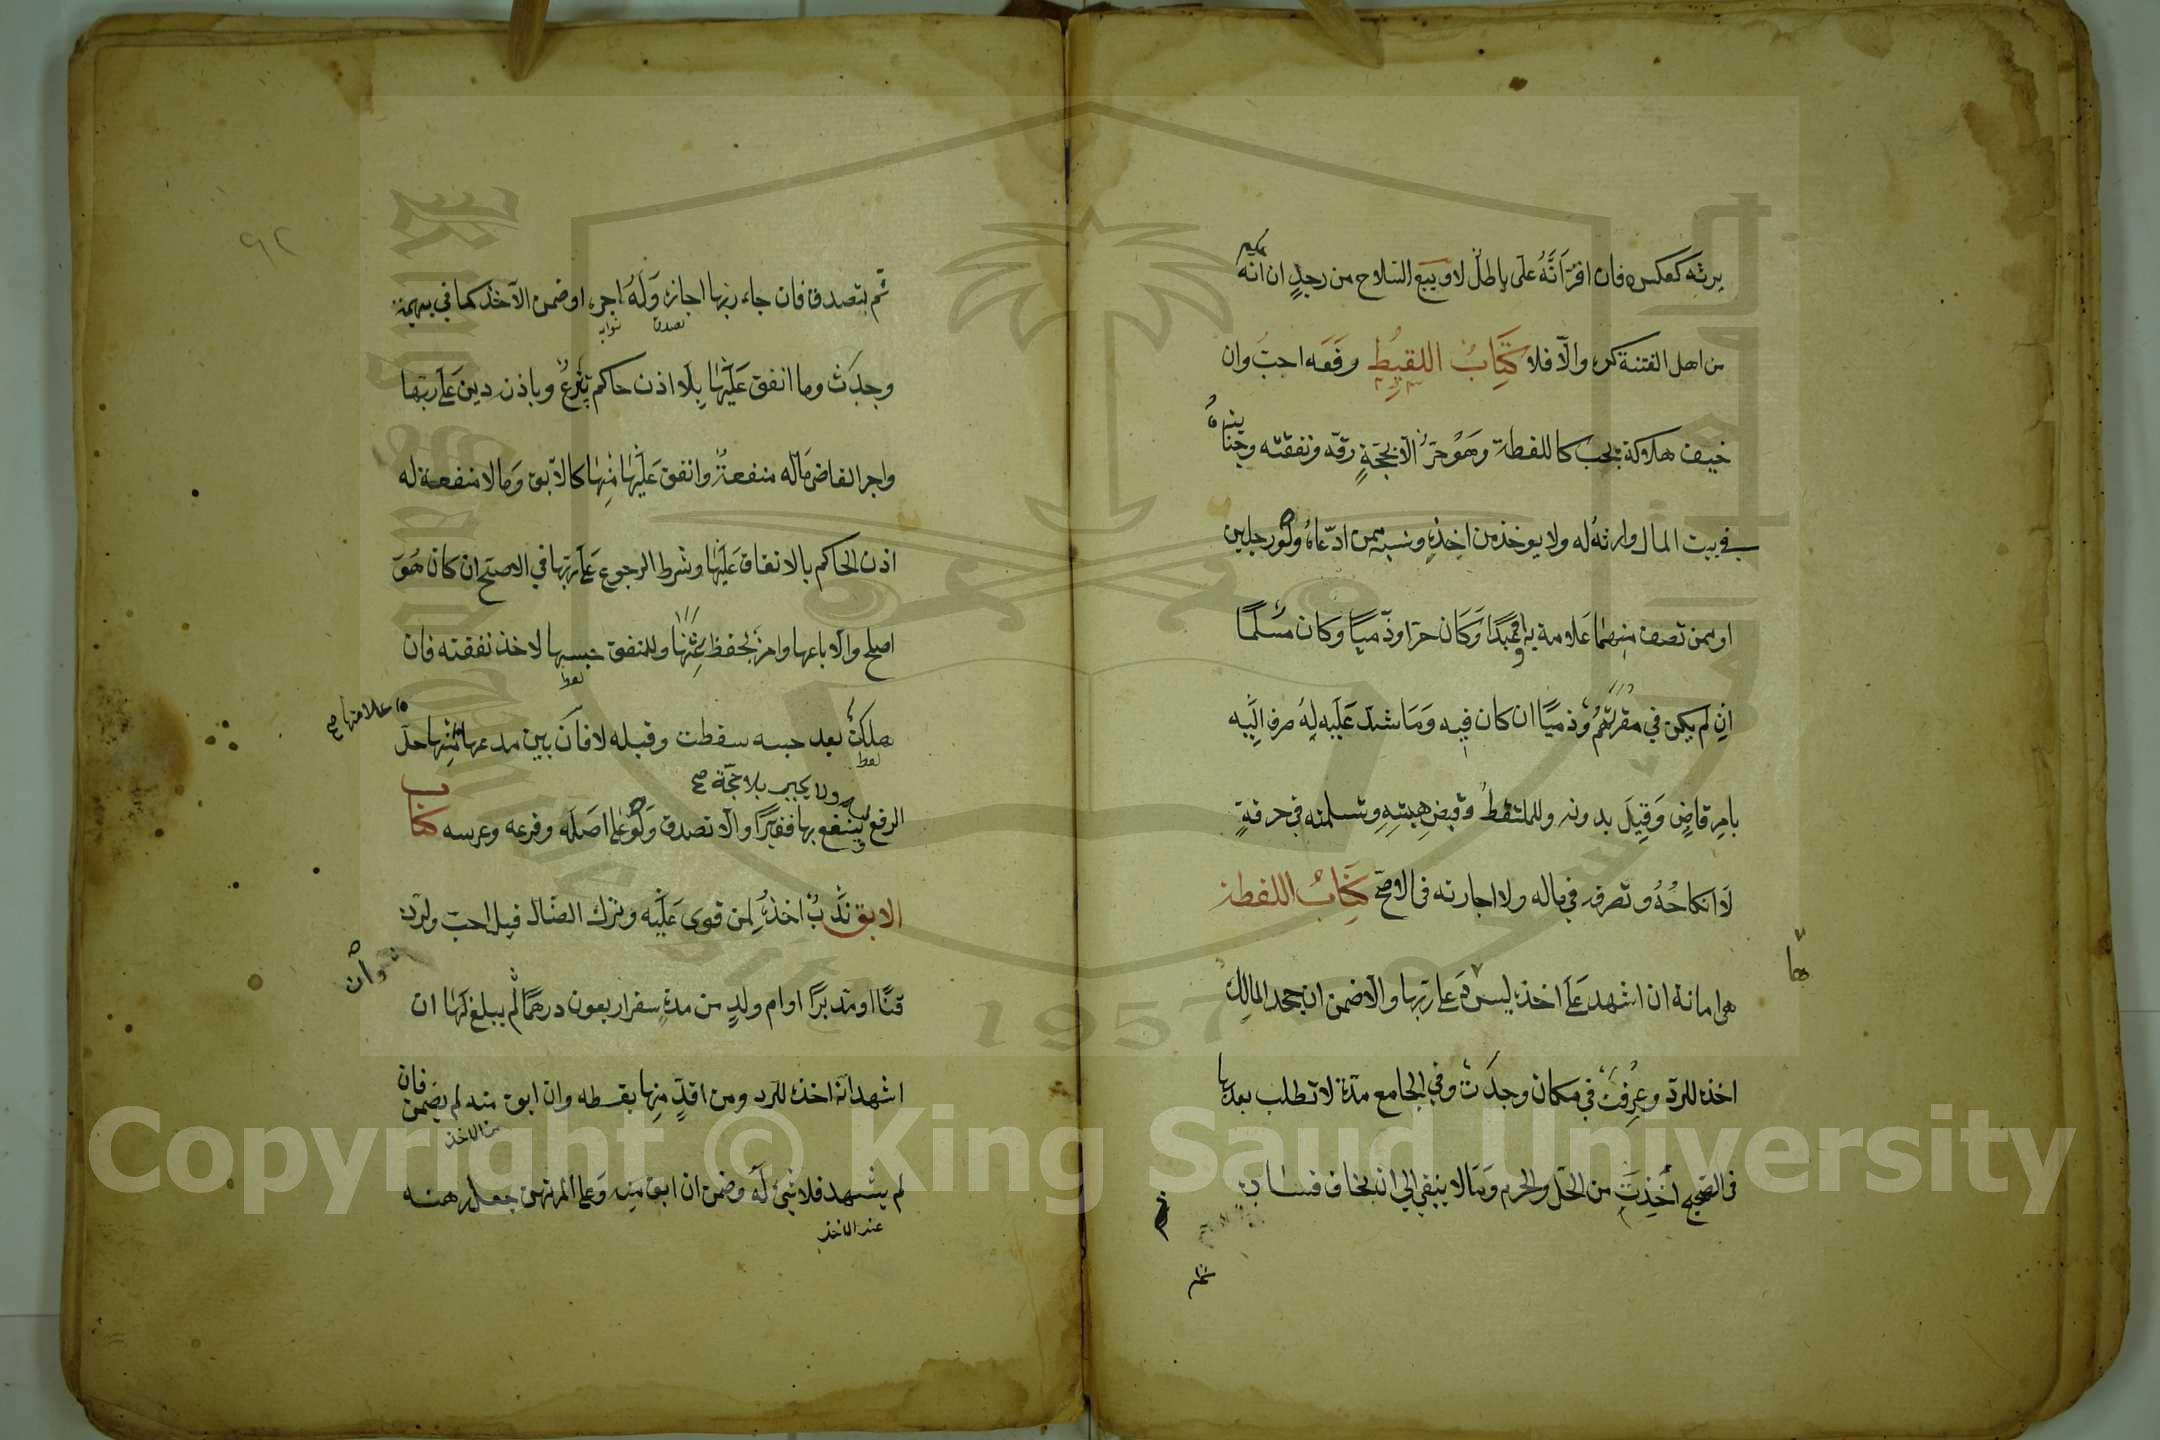 يرثه كعكسه فان اقر انه على باطل لا وبيع السلاح من رجل ان انه
من اهل الفتنة كره والا فلا كتاب اللقيط رفعه احب وان
خيف هلاكه يجب كاللقطة وهو حر الا بحجة رقه ونفقته وجنايته
في بيت المال وارثه له ولا يوخذ من اخذه ونسبه ممن ادعاه ولو رجلين
او ممن تصف منهما علامة به او عبدا وكان حرا وذميا وكان مسلما
ان لم يكن في مقرهم وذميا ان كان فيه وما شد عليه له صرف اليه
بامر قاض وقيل بدونه وللملتقط قبض هبته وتسليمه في حرفة
لا انكاحه وتصرف في ماله ولا اجارته في الاصح كتاب اللقطة
هي امانة ان اشهد على اخذه ليرده على ربها والا ضمن ان جحد المالك
اخذه للرد وعرفت في مكان وجدت وفي الجامع مدة لا تطلب بعدها
في الصحيح اخذت من الحل والحرم وما لا يبقى الى ان يخاف فساده
٩٢
ثم يتصدق فان جاء ربها اجازه وله اجره او ضمن الآخذ كما في بهيمة
تصدق ثوابه
وجدت وما انفق عليها بلا اذن حاكم تبرع وباذنه دين على ربها
واجر القاضي ماله منفعة وانفق عليها منها كالآبق وما لا منفعة له
اذن الحاكم بالانفاق عليها وشرط الرجوع على ربها في الاصح ان كان هو
اصلح والا باعها وامر بحفظ ثمنها وللمنفق حبسها لاخذ نفقته فان
لقطة
علامتها صح
هلكت بعد حبسه سقطت وقبله لا فان بين مدعيها حل
لقطة
ولا يجبر بلا حجة صح
الرفع لينتفع بها فقيرا والا تصدق ولو على اصله وفرعه وعرسه كتاب
الابق ندب اخذه لمن قوي عليه وترك الضال قيل احب ولراده
وان
قنا او مدبرا او ام ولد من مدة سفر اربعون درهما ثم يبلغ لها ان
اشهد انه اخذه للرد ومن اقل منها بقسطه وان ابق منه لم يضمن فان
من الاخذ
لم يشهد فلا شيء له وضمن ان ابق منه وعلى المرتهن جعل رهنه
عند الاخذ
Copyright © King Saud University
1957